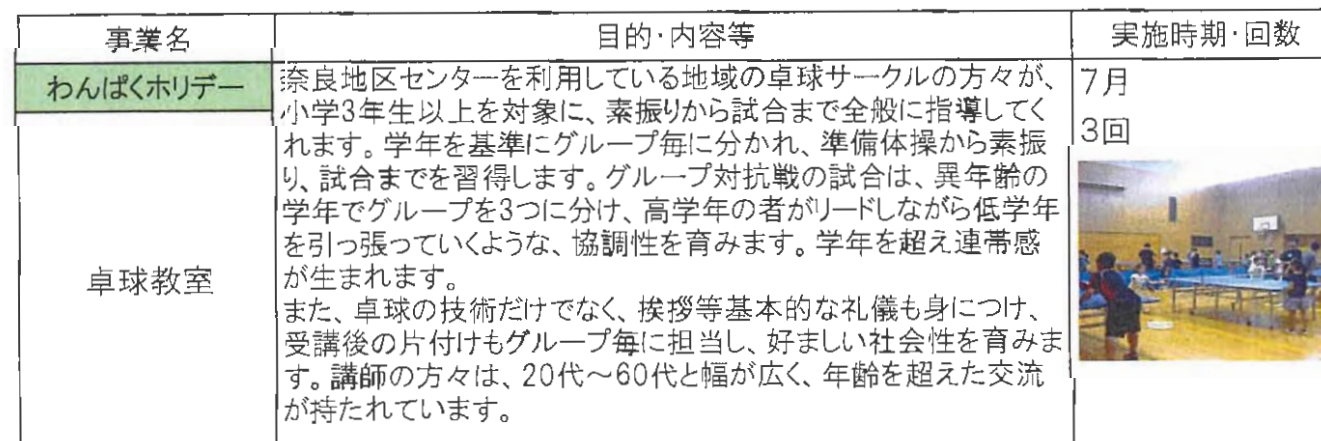 事業名
目的・内容等
実施時期・回数
わんぱくホリデー
卓球教室
奈良地区センターを利用している地域の卓球サークルの方々が、
小学3年生以上を対象に、素振りから試合まで全般に指導してく
れます。学年を基準にグループ毎に分かれ、準備体操から素振
り、試合までを習得します。グループ対抗戦の試合は、異年齢の
学年でグループを3つに分け、高学年の者がリードしながら低学年
を引っ張っていくような、協調性を育みます。学年を超え連帯感
が生まれます。
また、卓球の技術だけでなく、挨拶等基本的な礼儀も身につけ、
受講後の片付けもグループ毎に担当し、好ましい社会性を育みま
す。講師の方々は、20代～60代と幅が広く、年齢を超えた交流
が持たれています。
7月
3回